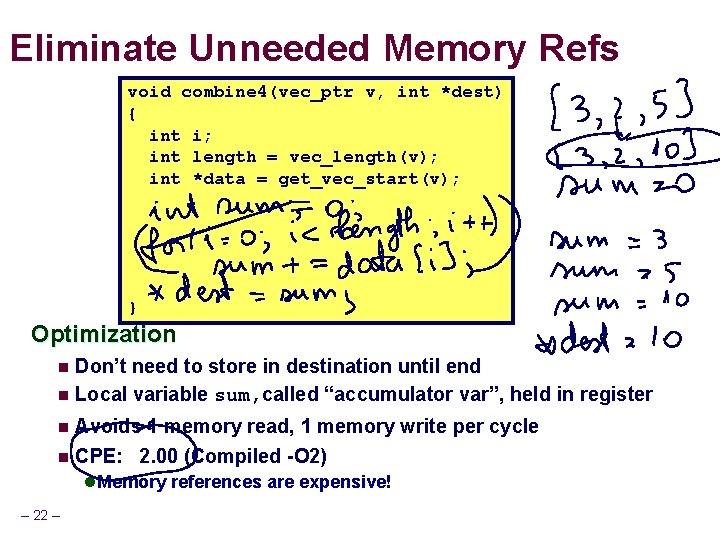 Eliminate Unneeded Memory Refs
void combine4(vec_ptr v, int *dest)
{
int i;
int length = vec_length(v);
int *data = get_vec_start(v);
int sum = 0;
for(i=0; i< length; i++)
sum += data[i];
*dest = sum;
}
[3,2,5]
[3,2,10]
sum = 0
sum = 3
sum = 5
sum = 10
*dest = 10
Optimization
Don’t need to store in destination until end
Local variable sum, called “accumulator var”, held in register
Avoids 1 memory read, 1 memory write per cycle
CPE: 2.00 (Compiled -O2)
Memory references are expensive!
– 22 –